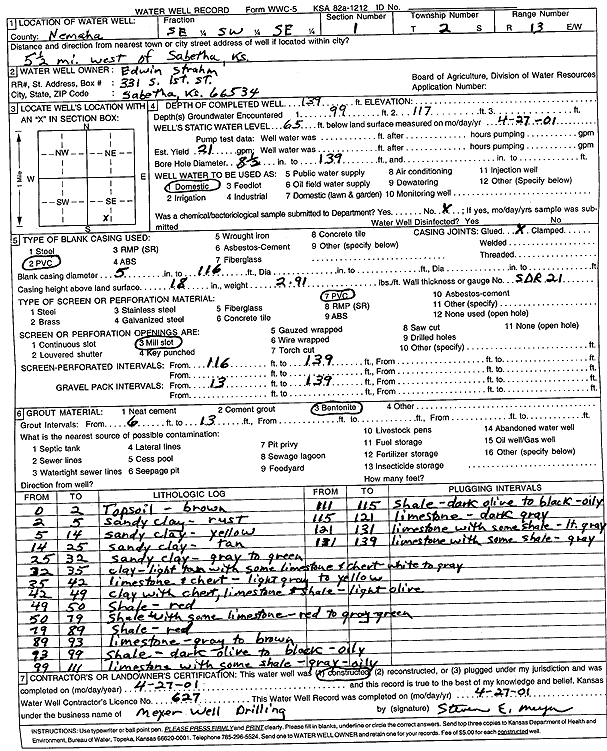 WATER WELL RECORD Form WWC-5 KSA 82a-1212 ID No.
1 LOCATION OF WATER WELL: Fraction Section Number Township Number Range Number
County: Nemaha SE ¼ SW ¼ SE ¼ 1 T 2 S R 13 E/W
Distance and direction from nearest town or city street address of well if located within city?
5½ mi. west of Sabetha Ks.
2 WATER WELL OWNER: Edwin Strahm
RR#, St. Address, Box # : 331 S. 1st. St. Board of Agriculture, Division of Water Resources
City, State, ZIP Code : Sabetha, Ks. 66534 Application Number:
3 LOCATE WELL'S LOCATION WITH AN "X" IN SECTION BOX:
N
NW NE
W E
SW SE
X
S
1 Mile
4 DEPTH OF COMPLETED WELL 139 ft. ELEVATION:
Depth(s) Groundwater Encountered 1. 99 ft. 2. 117 ft. 3. ft.
WELL'S STATIC WATER LEVEL 65 ft. below land surface measured on mo/day/yr 4-27-01
Pump test data: Well water was ft. after hours pumping gpm
Est. Yield 21 gpm: Well water was ft. after hours pumping gpm
Bore Hole Diameter 8½ in. to 139 ft., and in. to ft.
WELL WATER TO BE USED AS: 5 Public water supply 8 Air conditioning 11 Injection well
1 Domestic 3 Feedlot 6 Oil field water supply 9 Dewatering 12 Other (Specify below)
2 Irrigation 4 Industrial 7 Domestic (lawn & garden) 10 Monitoring well
Was a chemical/bacteriological sample submitted to Department? Yes No X ; If yes, mo/day/yrs sample was submitted
Water Well Disinfected? Yes No
5 TYPE OF BLANK CASING USED: 5 Wrought Iron 8 Concrete tile CASING JOINTS: Glued X Clamped
1 Steel 3 RMP (SR) 6 Asbestos-Cement 9 Other (specify below) Welded
2 PVC 4 ABS 7 Fiberglass Threaded
Blank casing diameter 5 in. to 116 ft., Dia in. to ft., Dia in. to ft.
Casing height above land surface 18 in., weight 2.91 lbs./ft. Wall thickness or gauge No. SDR 21
TYPE OF SCREEN OR PERFORATION MATERIAL: 7 PVC 10 Asbestos-cement
1 Steel 3 Stainless steel 5 Fiberglass 8 RMP (SR) 11 Other (specify)
2 Brass 4 Galvanized steel 6 Concrete tile 9 ABS 12 None used (open hole)
SCREEN OR PERFORATION OPENINGS ARE: 5 Gauzed wrapped 8 Saw cut 11 None (open hole)
1 Continuous slot 3 Mill slot 6 Wire wrapped 9 Drilled holes
2 Louvered shutter 4 Key punched 7 Torch cut 10 Other (specify) ft.
SCREEN-PERFORATED INTERVALS: From 116 ft. to 139 ft., From ft. to ft.
From ft. to ft., From ft. to ft.
GRAVEL PACK INTERVALS: From 13 ft. to 139 ft., From ft. to ft.
From ft. to ft., From ft. to ft.
6 GROUT MATERIAL: 1 Neat cement 2 Cement grout 3 Bentonite 4 Other
Grout Intervals: From 6 ft. to 13 ft., From ft. to ft., From ft. to ft.
What is the nearest source of possible contamination: 10 Livestock pens 14 Abandoned water well
1 Septic tank 4 Lateral lines 7 Pit privy 11 Fuel storage 15 Oil well/Gas well
2 Sewer lines 5 Cess pool 8 Sewage lagoon 12 Fertilizer storage 16 Other (specify below)
3 Watertight sewer lines 6 Seepage pit 9 Feedyard 13 Insecticide storage
Direction from well? How many feet?
FROM TO LITHOLOGIC LOG FROM TO PLUGGING INTERVALS
0 2 Topsoil - brown 111 115 Shale - dark olive to black - oily
2 5 sandy clay - rust 115 121 limestone - dark gray
5 14 sandy clay - yellow 121 131 limestone with some shale - lt. gray
14 25 sandy clay - tan 131 139 limestone with some shale - gray
25 32 sandy clay - gray to green
32 35 clay - light tan with some limestone & chert - white to gray
35 42 limestone & chert - light gray to yellow
42 49 clay with chert, limestone & shale - light olive
49 50 Shale - red
50 79 Shale with some limestone - red to gray-green
79 89 Shale - red
89 93 limestone - gray to brown
93 99 Shale - dark olive to black - oily
99 111 limestone with some shale - gray - oily
7 CONTRACTOR'S OR LANDOWNER'S CERTIFICATION: This water well was (1) constructed, (2) reconstructed, or (3) plugged under my jurisdiction and was
completed on (mo/day/year) 4-27-01 and this record is true to the best of my knowledge and belief. Kansas
Water Well Contractor's Licence No. 627 This Water Well Record was completed on (mo/day/yr) 4-27-01
under the business name of Meyer Well Drilling by (signature) Steven E. Meyer
INSTRUCTIONS: Use typewriter or ball point pen. PLEASE PRESS FIRMLY and PRINT clearly. Please fill in blanks, underline or circle the correct answers. Send top three copies to Kansas Department of Health and
Environment, Bureau of Water, Topeka, Kansas 66620-0001. Telephone 785-296-5524. Send one to WATER WELL OWNER and retain one for your records. Fee of $5.00 for each constructed well.